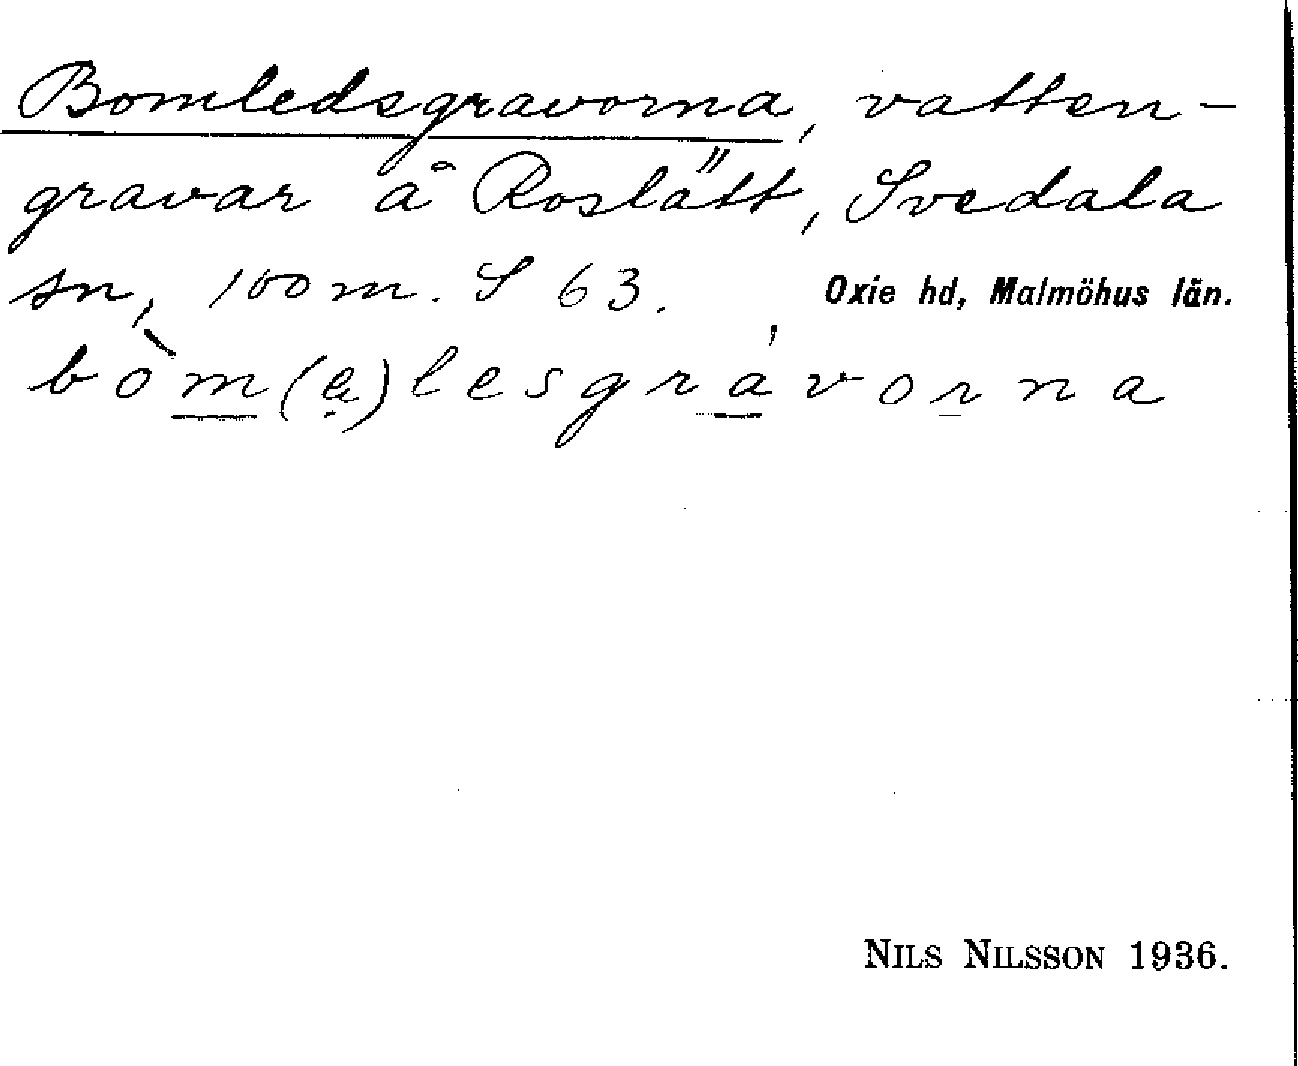 Bomledsgravorna, vatten-
gravar å Roslätt, Svedala
sn, 100 m. S 63. Oxie hd, Malmöhus län.
bòm(e)lesgrávorna
NILS NILSSON 1936.